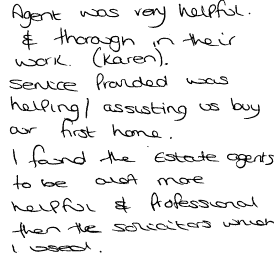 Agent was very helpful.
& thorough in their
work. (Karen).
Service Provided was
helping/ assisting us buy
our first home.
I found the Estate agents
to be alot more
helpful & Professional
then the solicitors which
I used.